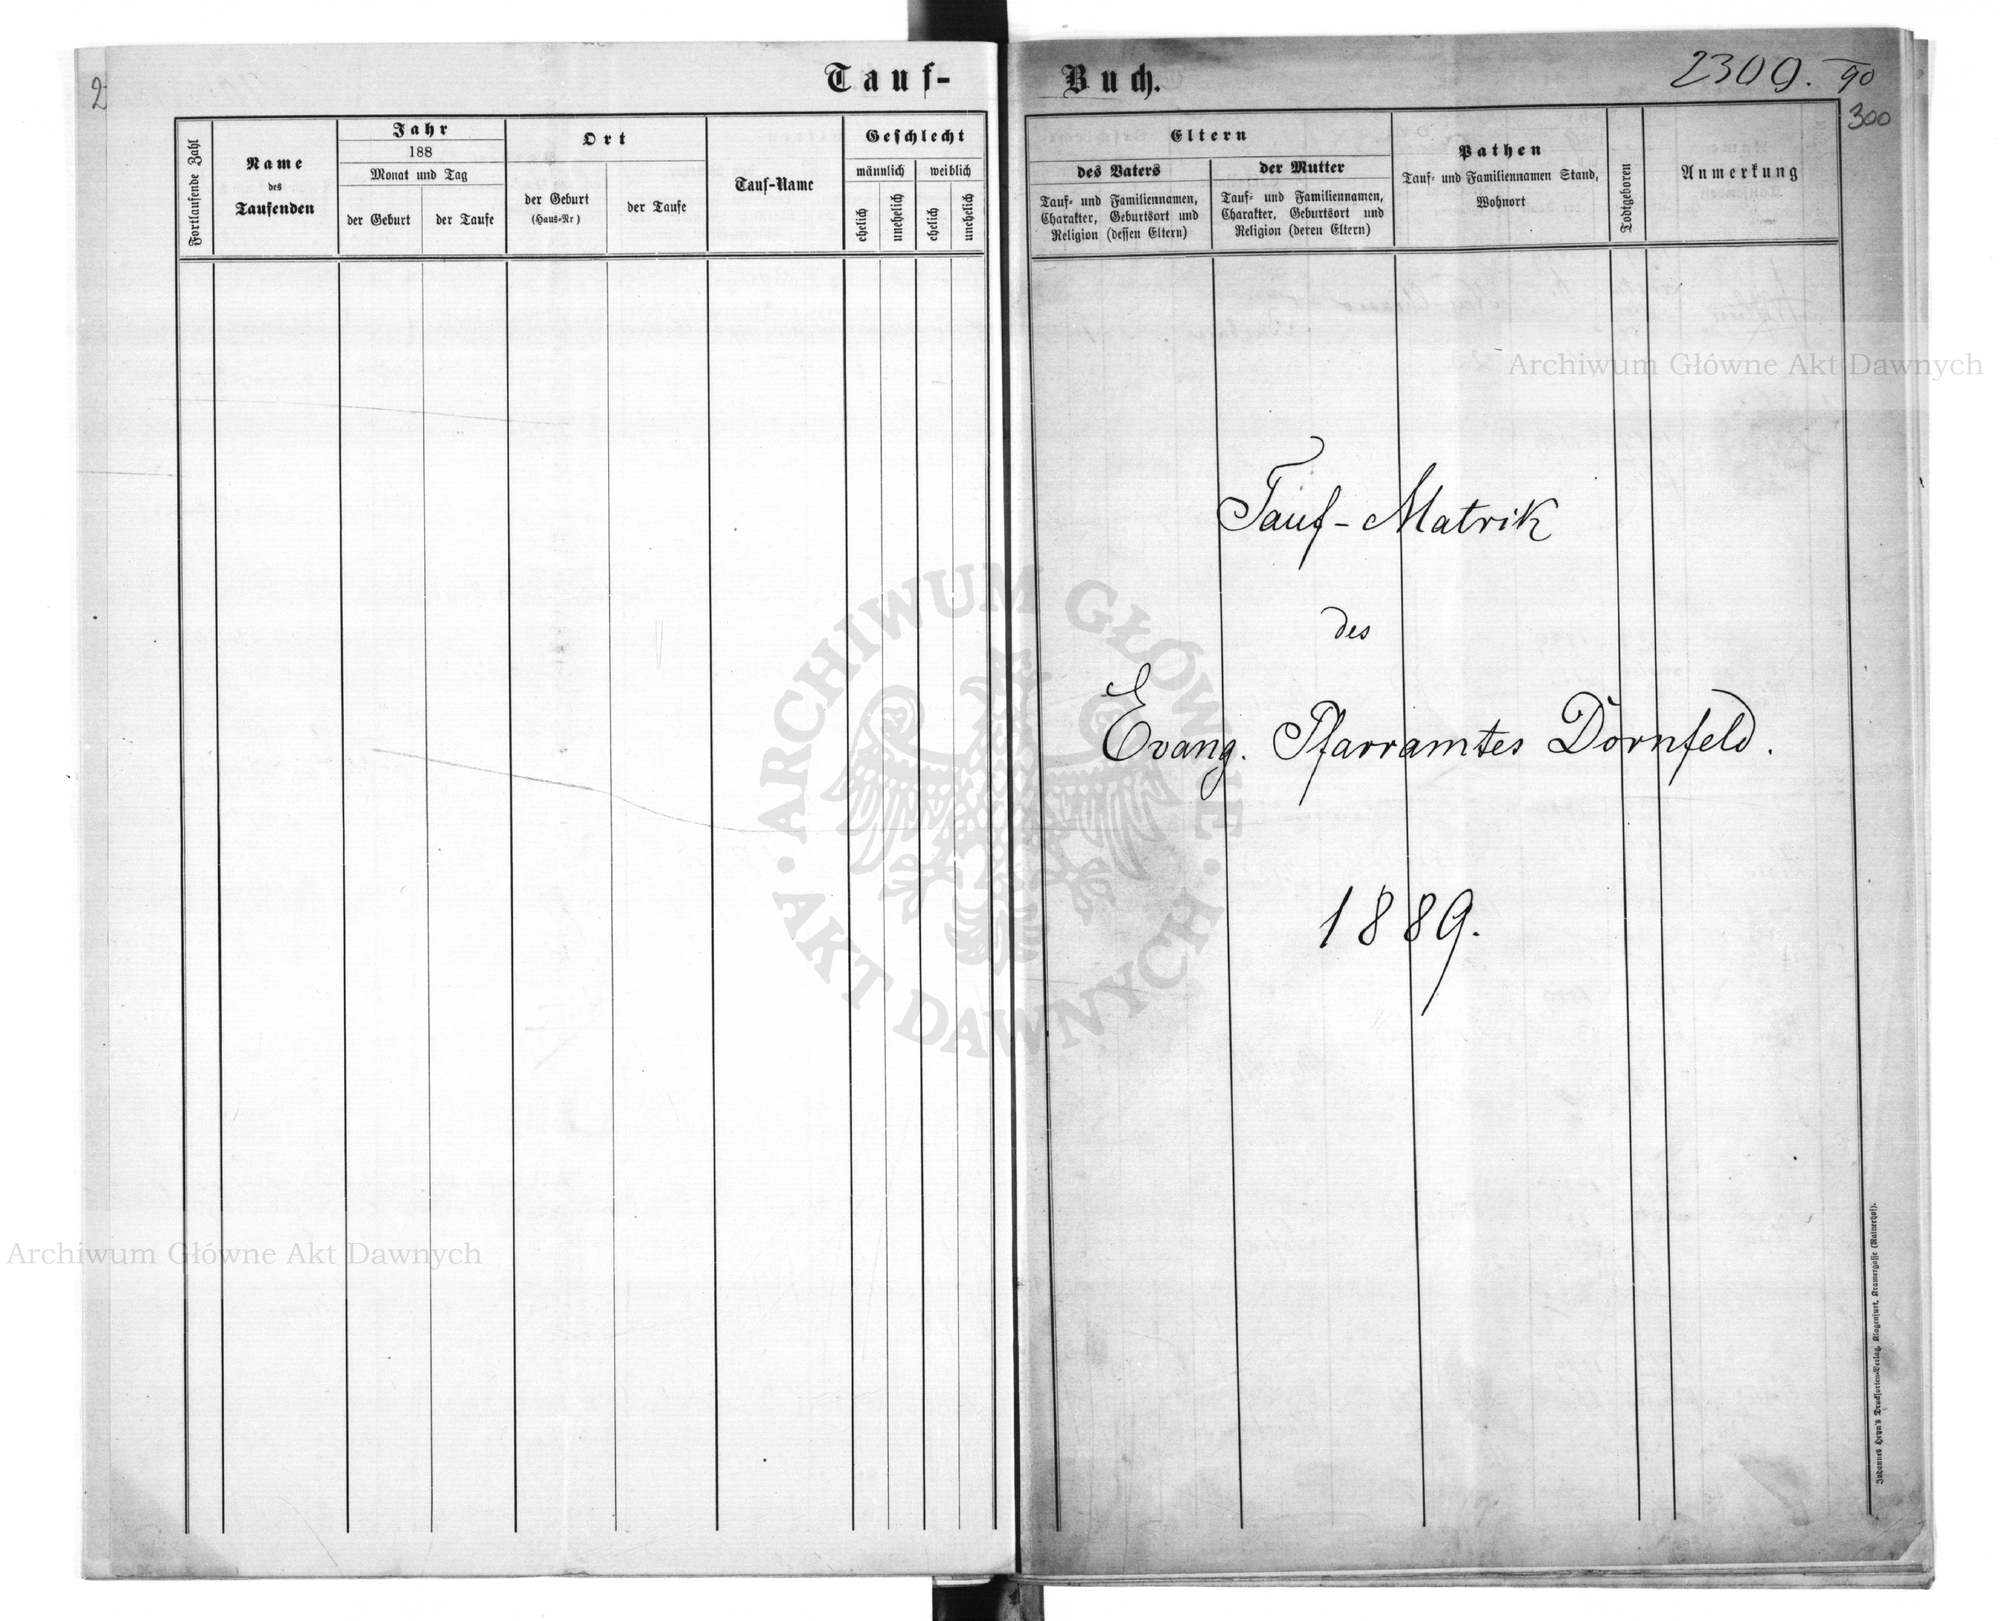 2
Tauf-
Buch.
2309. 90
300
Fortlaufende Zahl
Name
des
Taufenden
Jahr
188
Monat und Tag
der Geburt
der Taufe
Ort
der Geburt
(Haus-Nr)
der Taufe
Tauf-Name
Geschlecht
männlich
weiblich
ehelich
unehelich
ehelich
unehelich
Eltern
des Vaters
Tauf- und Familiennamen,
Charakter, Geburtsort und
Religion (dessen Eltern)
der Mutter
Tauf- und Familiennamen,
Charakter, Geburtsort und
Religion (deren Eltern)
Pathen
Tauf- und Familiennamen Stand,
Wohnort
Todtgeboren
Anmerkung
Archiwum Główne Akt Dawnych
Tauf-Matrik
des
Evang. Pfarramtes Dornfeld.
1889.
ARCHIWUM GŁÓWNE
AKT DAWNYCH
Archiwum Główne Akt Dawnych
Johannes Heyn's Drucksorten-Verlag, Klagenfurt, Kramergasse (Rainerhof).